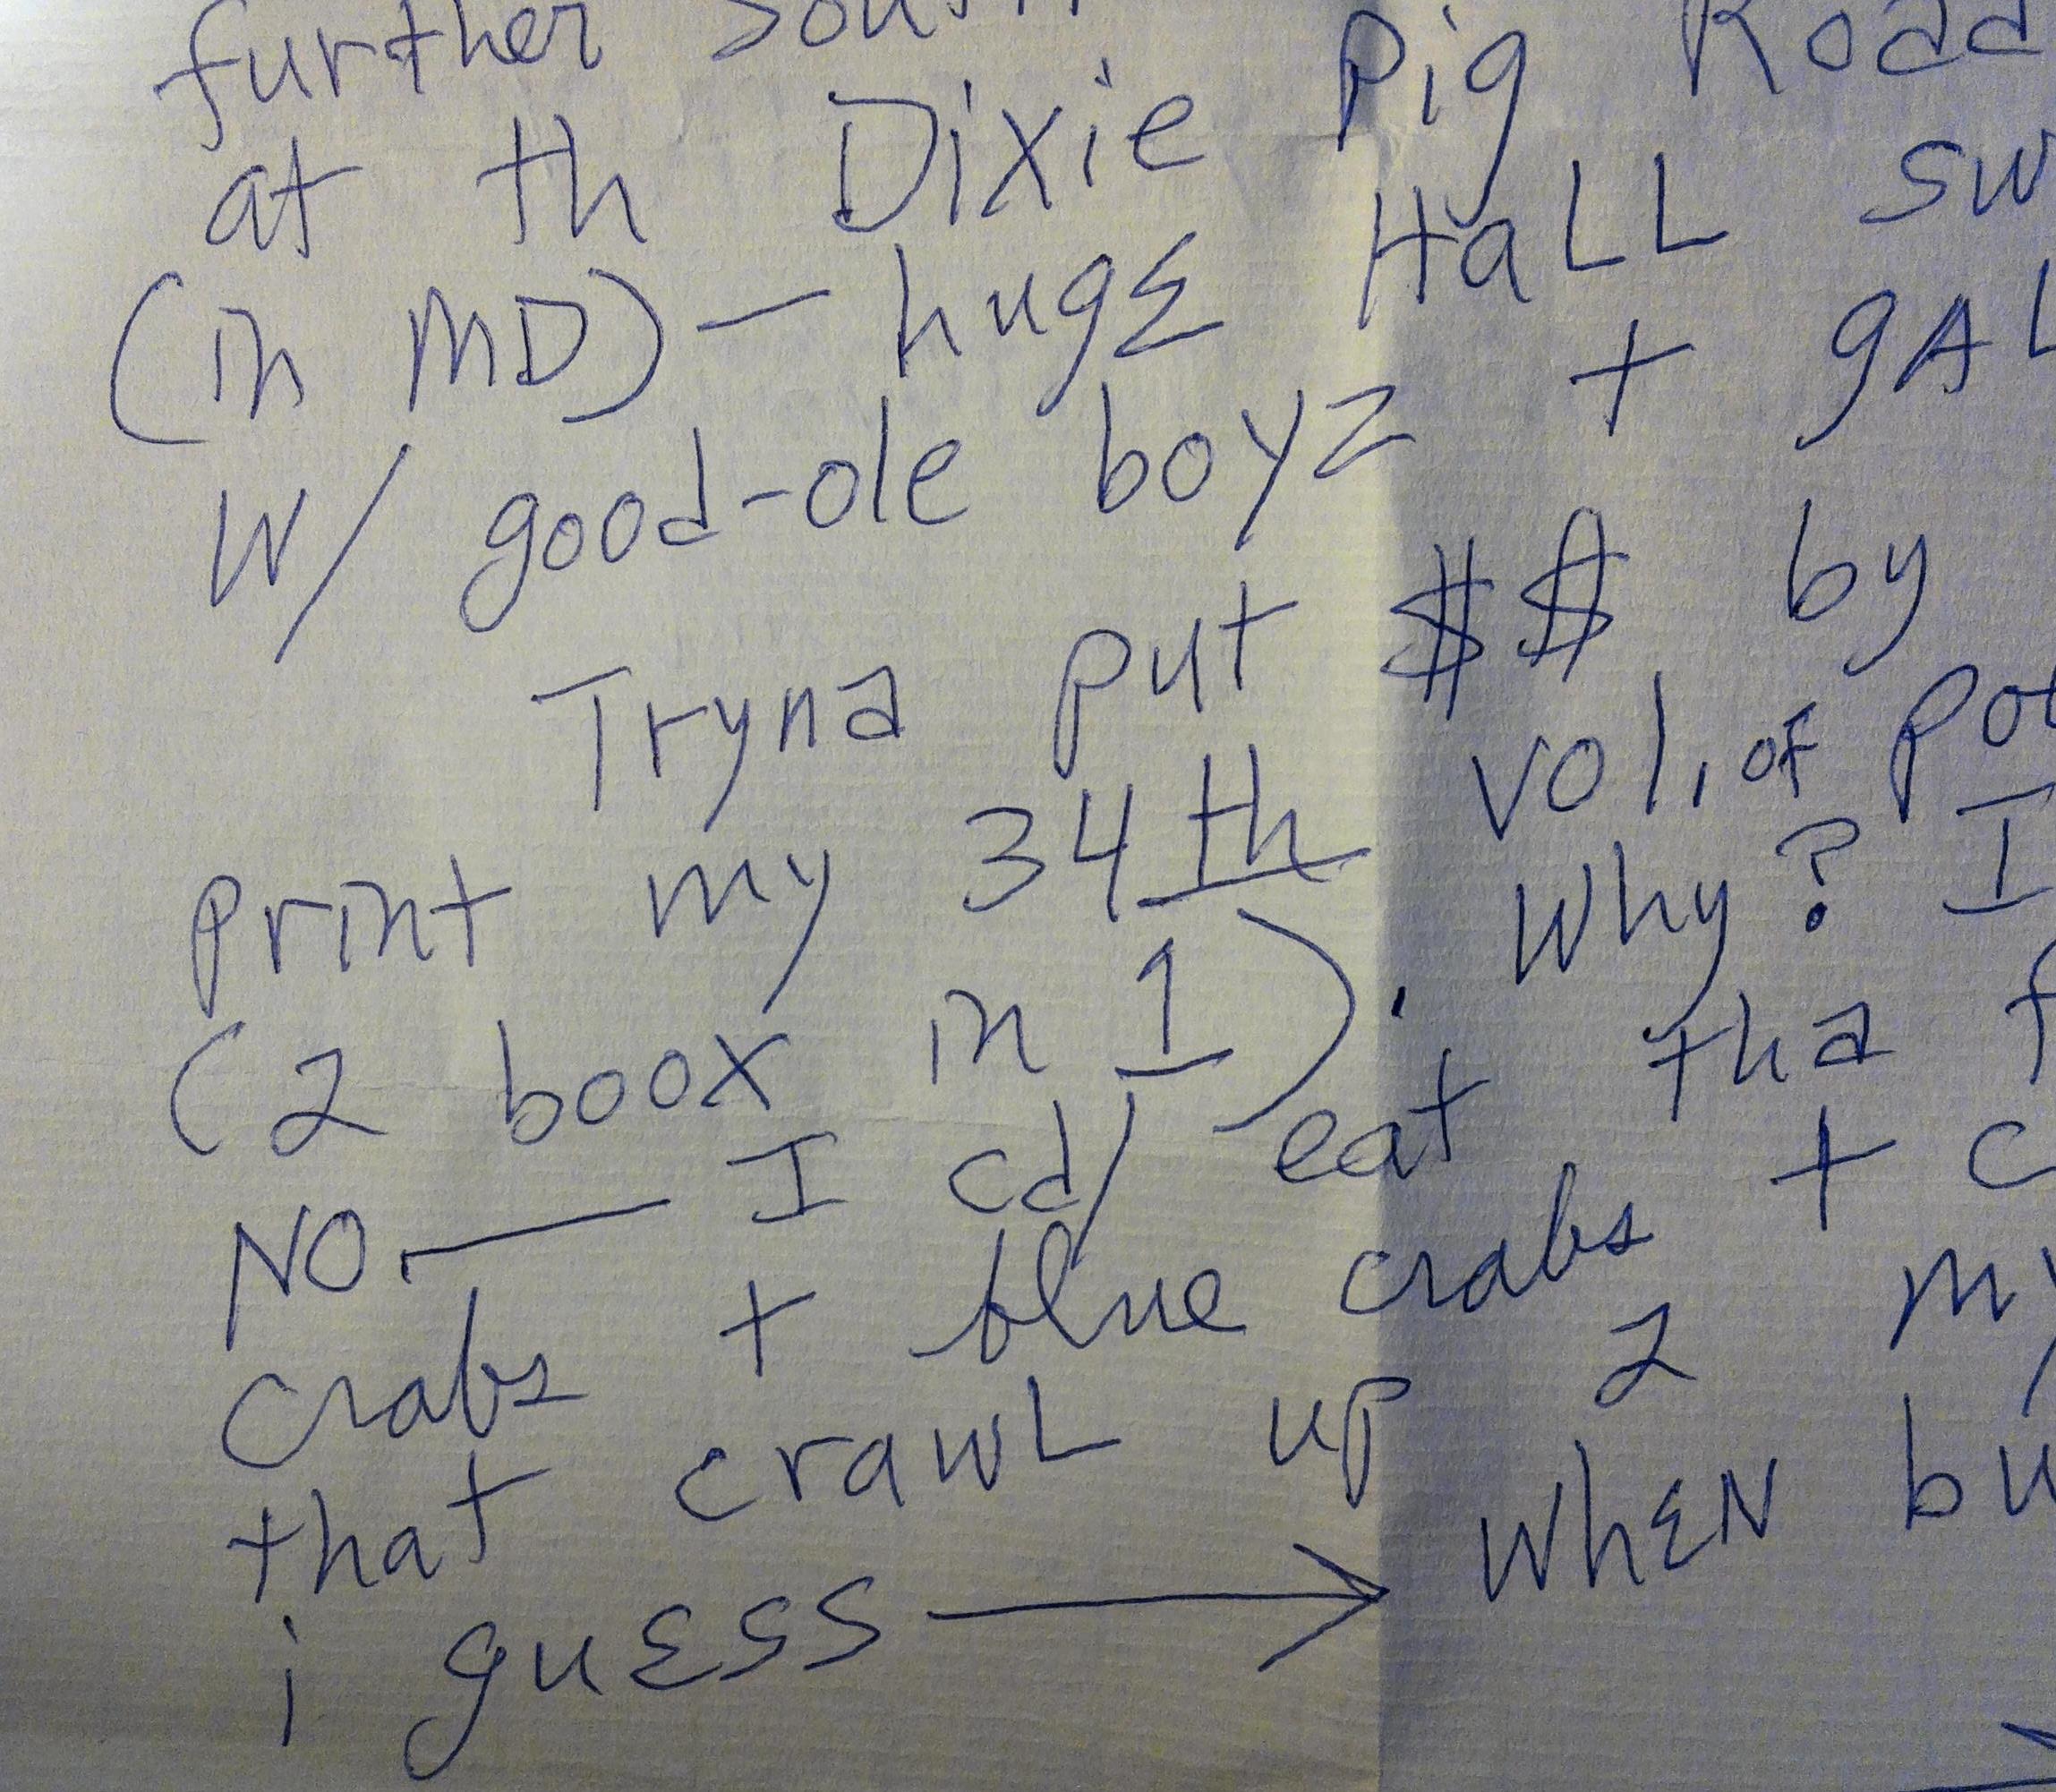 further South
at th Dixie Pig Road
(in MD) — hugE HaLL sw
W/ good-ole boyz + gAL
Tryna put $$ by
print my 34th vol, of Po
(2 boox in 1). Why? I
NO — I cd/ eat tha f
crabs + blue crabs + c
that crawL up 2 my
i guESS → WhEN bu